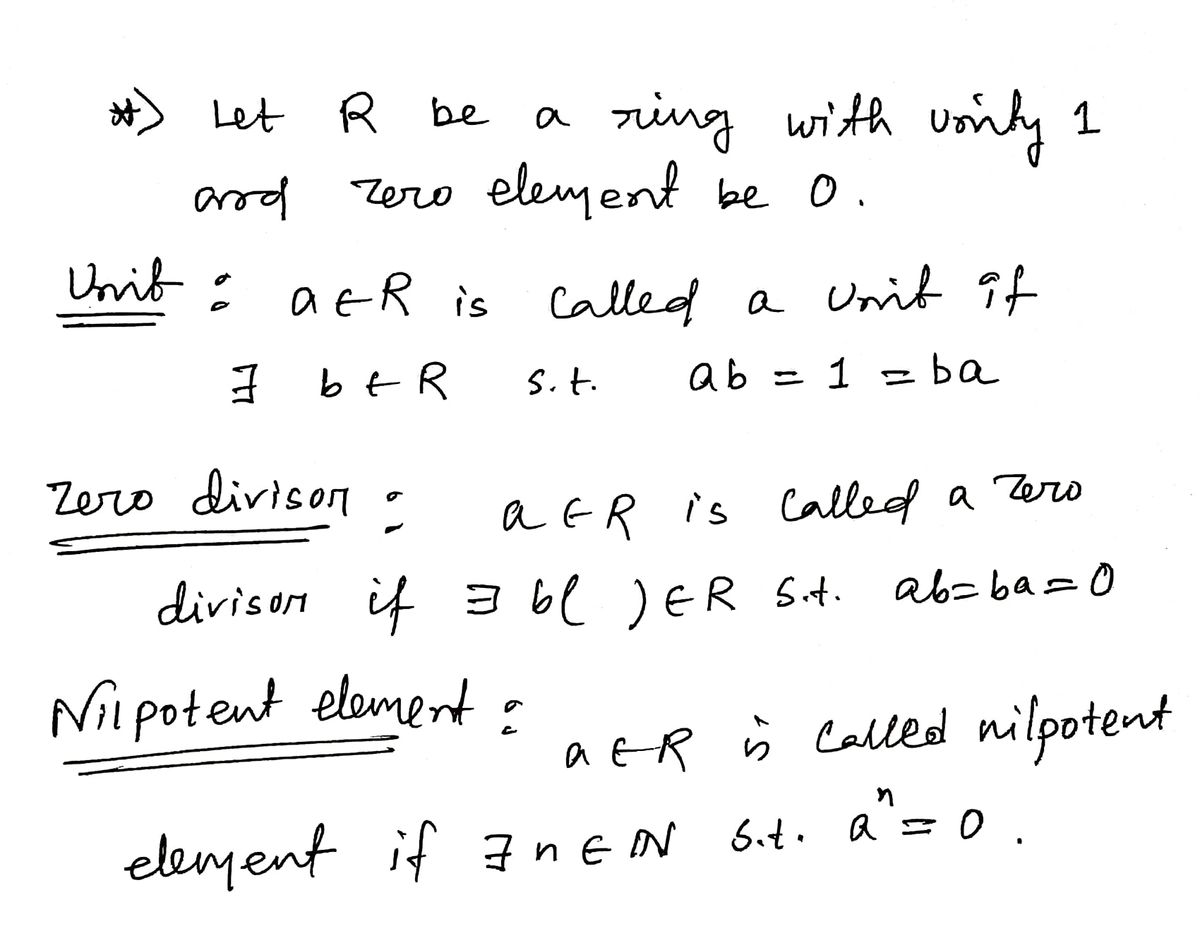 *) Let R be a ring with unity 1
and zero element be 0.
Unit : a ∈ R is called a unit if
∃ b ∈ R s.t. ab = 1 = ba
Zero divisor : a ∈ R is called a zero
divisor if ∃ b( ) ∈ R s.t. ab = ba = 0
Nilpotent element : a ∈ R is called nilpotent
element if ∃ n ∈ ℕ s.t. aⁿ = 0.